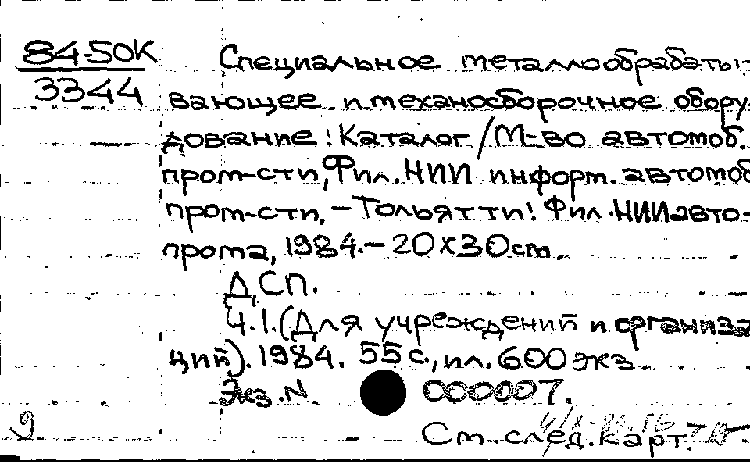 84-50К Специальное металлообрабаты-
3344 вающее и механосборочное обору
дование: Каталог / М-во автомоб.
пром-сти, Фил. НИИ информ. автомоб
пром-сти. – Тольятти: Фил. НИИавто-
прома, 1984. – 20х30cm.
ДСП.
Ч.1. (Для учреждений и организа
ций). 1984. 55 с., ил. 600 экз.
Экз. N 000007.
9
См. след. карт.